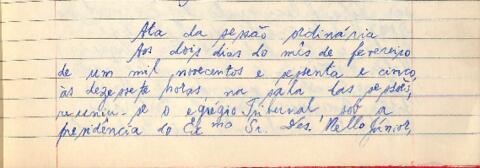 Ata da sessão ordinária
Aos dois dias do mês de fevereiro
de um mil novecentos e sessenta e cinco,
às dezessete horas na sala das sessões,
reuniu-se o egrégio Tribunal sob a
presidência do Exmo Sr. Des. Mello Júnior,